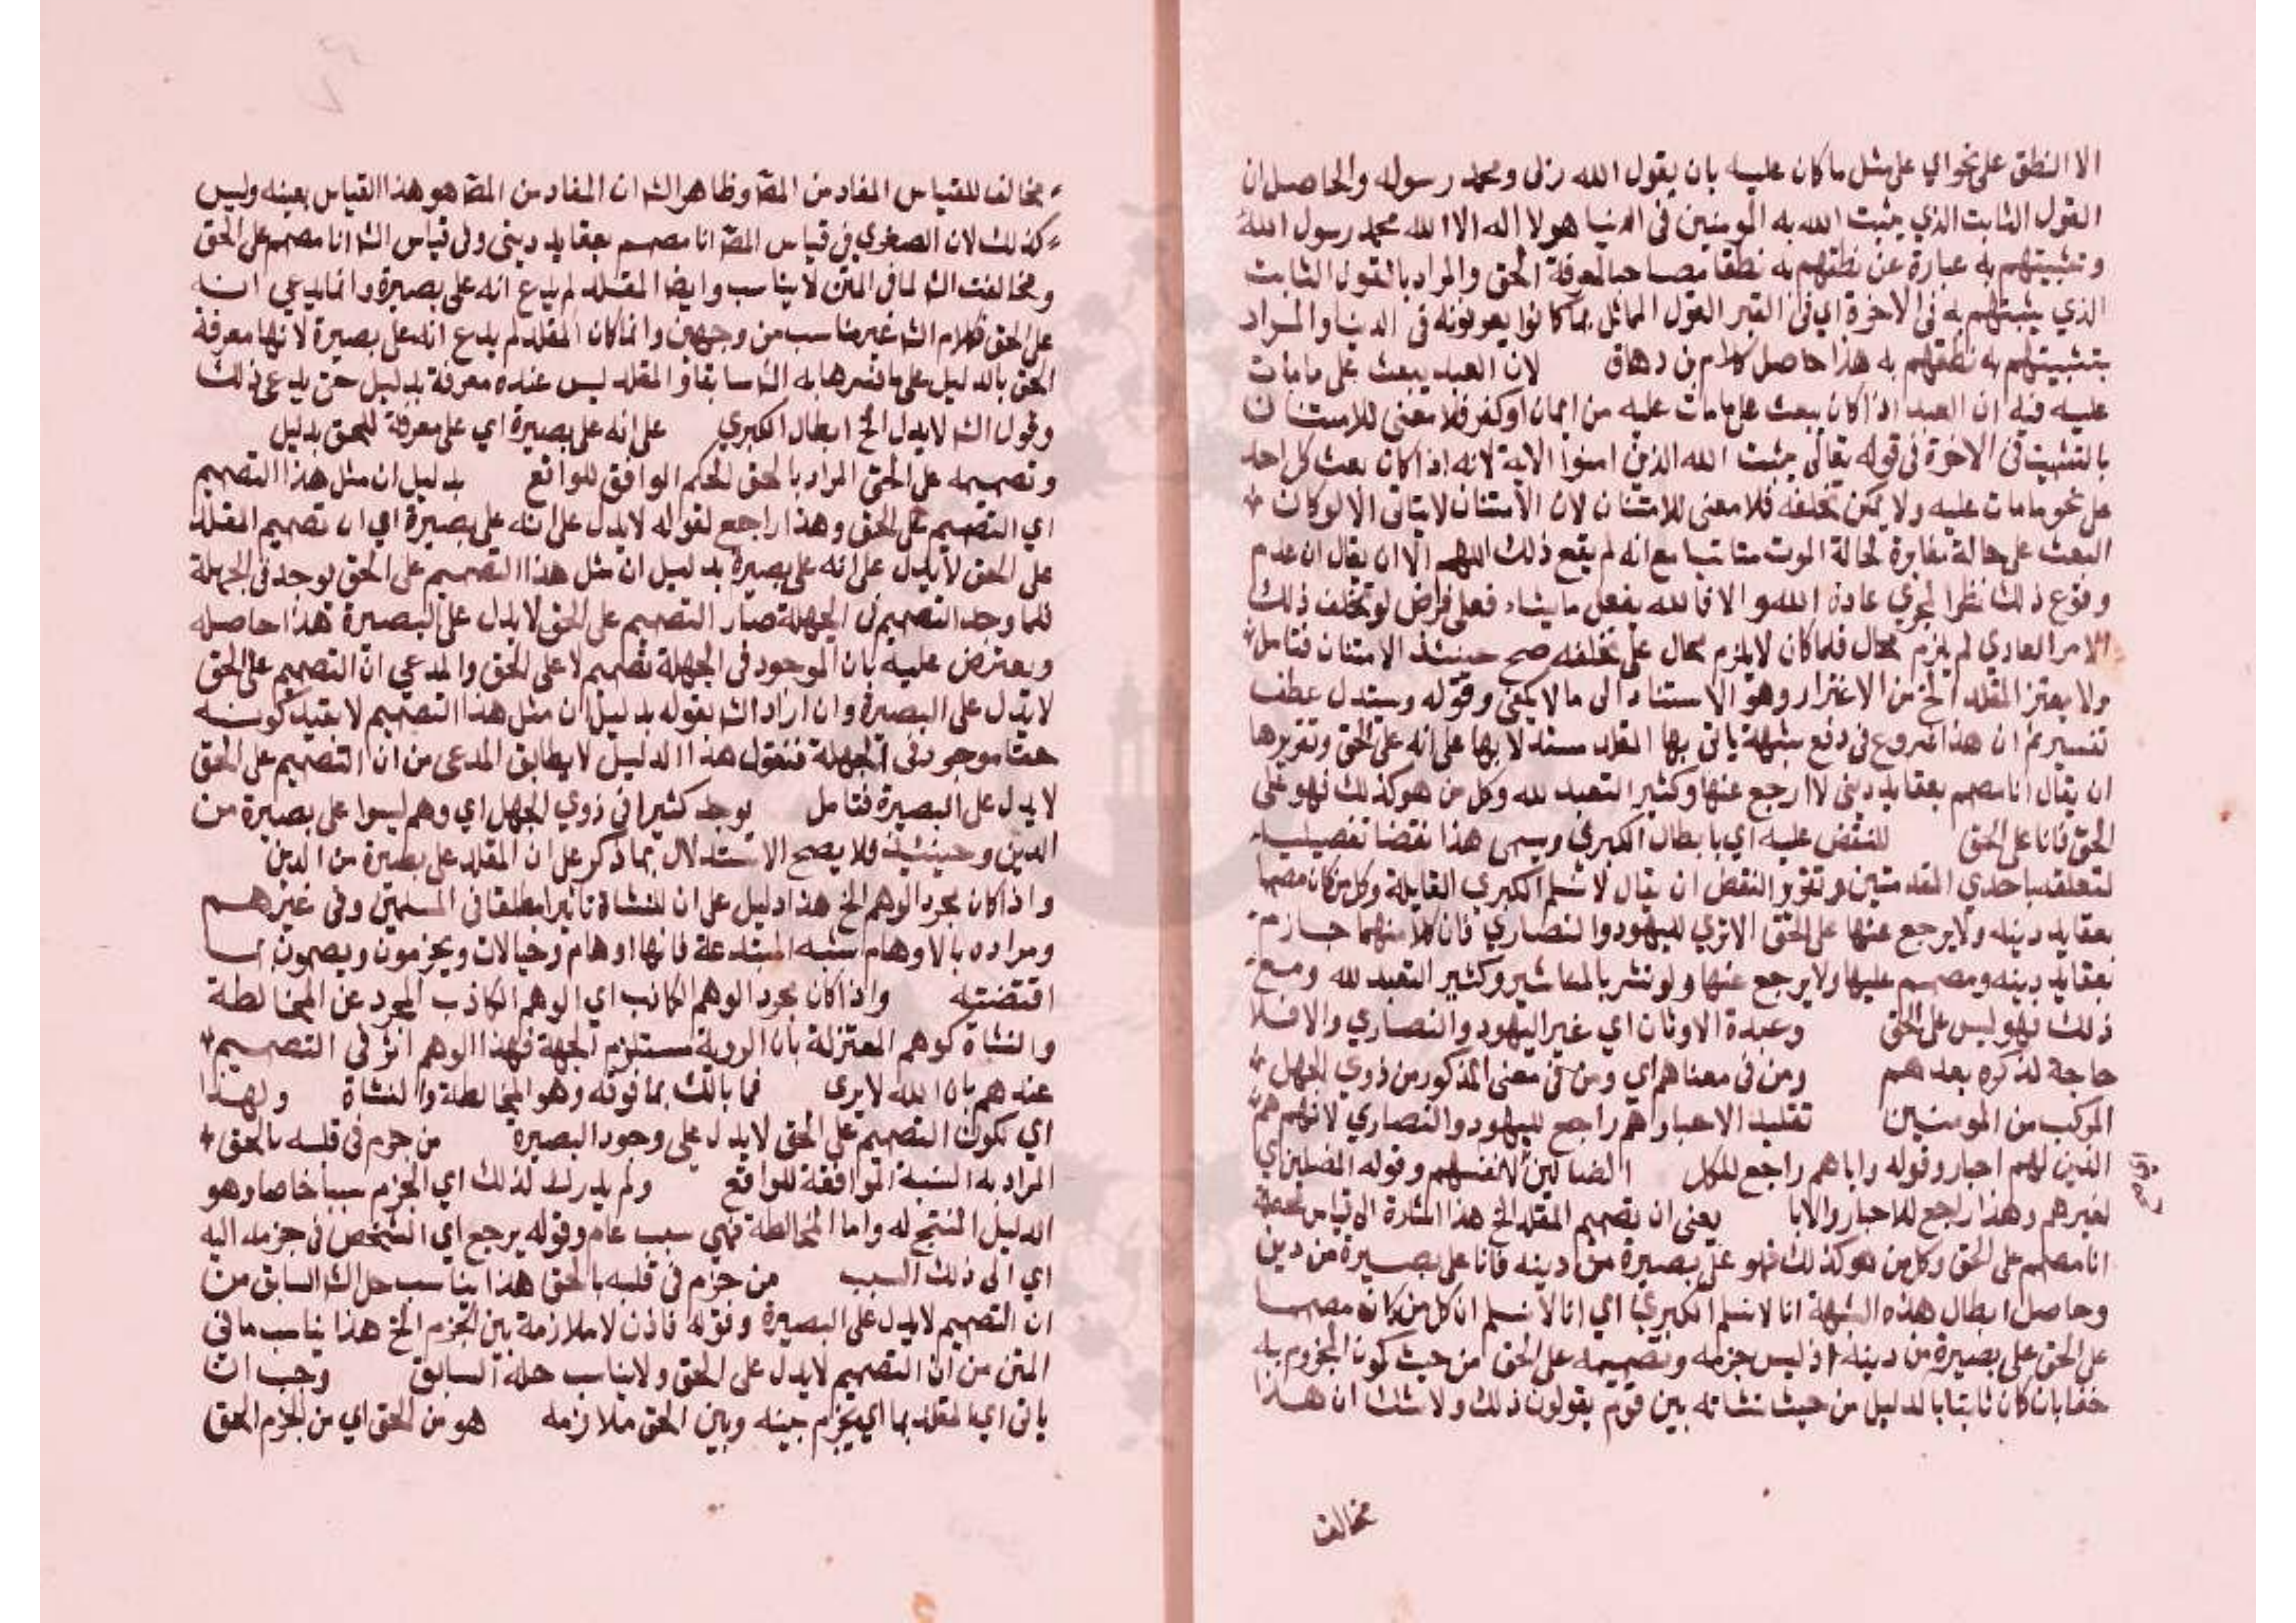 الا النطق على نحو اي على مثل ما كان عليه بان يقول الله ربى ومحمد رسوله والحاصل ان
القول الثابت الذي يثبت الله به المومنين فى الدنيا هو لا اله الا الله محمد رسول الله
وتثبيتهم به عبارة عن نطقهم به نطقا مصاحبا لمعرفة الحق والمراد بالقول الثابت
الذي يثبتهم به فى الاخرة اي فى القبر القول المماثل لما كانوا يعرفونه فى الدنيا والمراد
بتثبيتهم به نطقهم به هذا حاصل كلام بن دهاق لان العبد يبعث على ما مات
عليه فيه ان العبد اذا كان يبعث على ما مات عليه من ايمان او كفر فلا معنى للامتنان
بالتثبيت فى الاخرة فى قوله تعالى يثبت الله الذين امنوا الاية لانه اذا كان بعث كل احد
على نحو ما مات عليه ولا يمكن تخلفه فلا معنى للامتنان لان الامتنان لا يتاتى الا لو كان
البعث على حالة مغايرة لحالة الموت متاتيا مع انه لم يقع ذلك اللهم الا ان يقال ان عدم
وقوع ذلك نظرا لجري عادة الله والا فالله يفعل ما يشاء فعلى فرض لو تخلف ذلك
الامر العادي لم يلزم محال فلما كان لا يلزم محال على تخلفه صح حينئذ الامتنان فتامل
ولا يغتر المقلد الخ من الاغترار وهو الاستناد الى ما لا يكفى وقوله ويستدل عطف
تفسير ثم ان هذا شروع فى دفع شبهة ياتى بها المقلد مستدلا بها على انه على الحق وتقريرها
ان يقال انا مصمم بعقايد دينى لا ارجع عنها وكثير التعبد لله وكل من هو كذلك فهو على
الحق فانا على الحق للنقض عليه اي بابطال الكبري ويسمى هذا نقضا تفصيليا
لتعلقه باحدي المقدمتين وتقرير النقض ان يقال لا نسلم الكبري القايلة وكل من كان مصمما
بعقايد دينه ولا يرجع عنها على الحق الا تري لليهود والنصاري فان كلا منهما جازم
بعقايد دينه ومصمم عليها ولا يرجع عنها ولو نشر بالمناشير وكثير التعبد لله ومع
ذلك فهو ليس على الحق وعبدة الاوثان اي غير اليهود والنصاري والا فلا
حاجة لذكره بعدهم ومن فى معناهم اي ومن فى معنى المذكور من ذوي الجهل
المركب من المومنين تقليد الاحبارهم راجع لليهود والنصاري لانهم هم
الذين لهم احبار وقوله واباهم راجع للكل الضالين لانفسهم وقوله المضلين اي
لغيرهم وهذا راجع للاحبار والابا يعنى ان تصميم المقلد الخ هذا اشارة الى قياس نصه
انا مصمم على الحق وكل من هو كذلك فهو على بصيرة من دينه فانا على بصيرة من دينى
وحاصل ابطال هذه الشبهة انا لا نسلم الكبري اي انا لا نسلم ان كل من كان مصمما
على الحق على بصيرة من دينه اذ ليس جزمه وتصميمه على الحق من حيث كون المجزوم به
حقا بان كان ثابتا بالدليل من حيث نشاته بين قوم يقولون ذلك ولا شك ان هذا
مخالف
مخالف للقياس المفاد من المصـ وظاهر الشـ ان المفاد من المصـ هو هذا القياس بعينه وليس
كذلك لان الصغري فى قياس المصـ انا مصمم بعقايد دينى وفى قياس الشـ انا مصمم على الحق
ومخالفة الشـ لما فى المتن لا يناسب وايضا المقلد لم يدع انه على بصيرة وانما يدعى انه
على الحق فكلام الشـ غير مناسب من وجهين وانما كان المقلد لم يدع انه على بصيرة لانها معرفة
الحق بالدليل على ما فسرها به الشـ سابقا والمقلد ليس عنده معرفة بدليل حتى يدعى ذلك
وقول الشـ لا يدل الخ ابطال الكبري على انه على بصيرة اي على معرفة للحق بدليل
وتصميمه على الحق المراد بالحق الحكم الموافق للواقع بدليل ان مثل هذا التصميم
اي التصميم على الحق وهذا راجع لقوله لا يدل على انه على بصيرة اي ان تصميم المقلد
على الحق لا يدل على انه على بصيرة بدليل ان مثل هذا التصميم على الحق يوجد فى الجهلة
فلما وجد التصميم فى الجهلة صار التصميم على الحق لا يدل على البصيرة هذا حاصله
ويعترض عليه بان الموجود فى الجهلة تصميم لا على الحق والمدعى ان التصميم على الحق
لا يدل على البصيرة وان اراد الشـ بقوله بدليل ان مثل هذا التصميم لا بقيد كونه
حقا موجود فى الجهلة فنقول هذا الدليل لا يطابق المدعى من ان التصميم على الحق
لا يدل على البصيرة فتامل يوجد كثيرا فى ذوي الجهل اي وهم ليسوا على بصيرة من
الدين وحينئذ فلا يصح الاستدلال بما ذكر على ان المقلد على بصيرة من الدين
واذا كان مجرد الوهم الخ هذا دليل على ان للنشاة تاثيرا مطلقا فى المسلمين وفى غيرهم
ومراده بالاوهام شبه المبتدعة فانها اوهام وخيالات ويجزمون ويصممون بما
اقتضته واذا كان مجرد الوهم الكاذب اي الوهم الكاذب المجرد عن المخالطة
والنشاة كوهم المعتزلة بان الروية مستلزم الجهة فهذا الوهم اثر فى التصميم
عندهم بان الله لا يرى فما بالك بما فوقه وهو المخالطة والنشاة ولهذا
اي لكون التصميم على الحق لا يدل على وجود البصيرة من جزم فى قلبه بالحق
المراد به النسبة الموافقة للواقع ولم يدرك لذلك اي الجزم سببا خاصا وهو
الدليل المنتج له واما المخالطة فهي سبب عام وقوله يرجع اي الشخص فى جزمه اليه
اي الى ذلك السبب من جزم فى قلبه بالحق هذا يناسب حل الشـ السابق من
ان التصميم لا يدل على البصيرة وقوله فاذن لا ملازمة بين الجزم الخ هذا يناسب ما فى
المتن من ان التصميم لا يدل على الحق ولا يناسب حله السابق وجب ان
ياتى اي المقلد بما اي بجزم بينه وبين الحق ملازمة هو من الحق اي من الجزم الحق